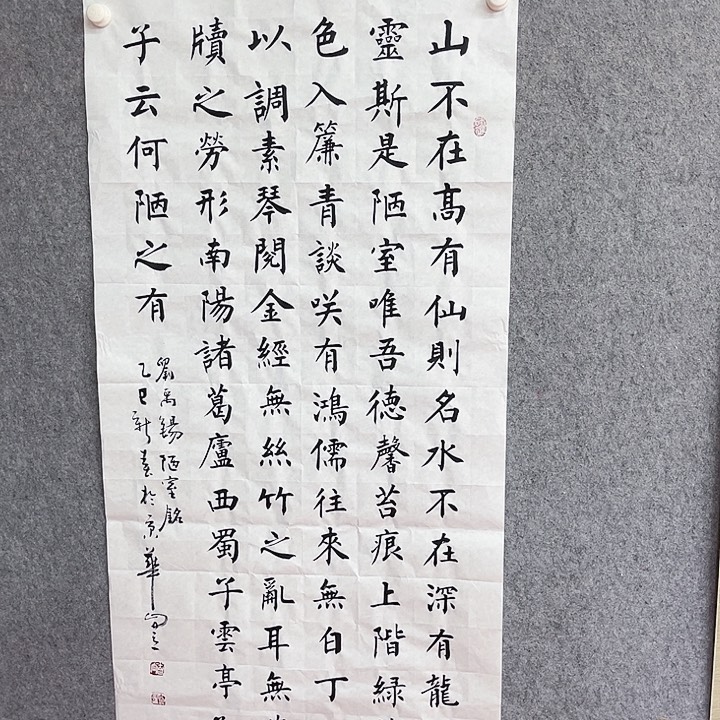 山不在高有仙則名水不在深有龍
靈斯是陋室唯吾德馨苔痕上階緑
色入簾青談咲有鴻儒往來無白丁
以調素琴閱金經無絲竹之亂耳無
牘之勞形南陽諸葛廬西蜀子雲亭
子云何陋之有
劉禹錫陋室銘
乙巳新春於京華